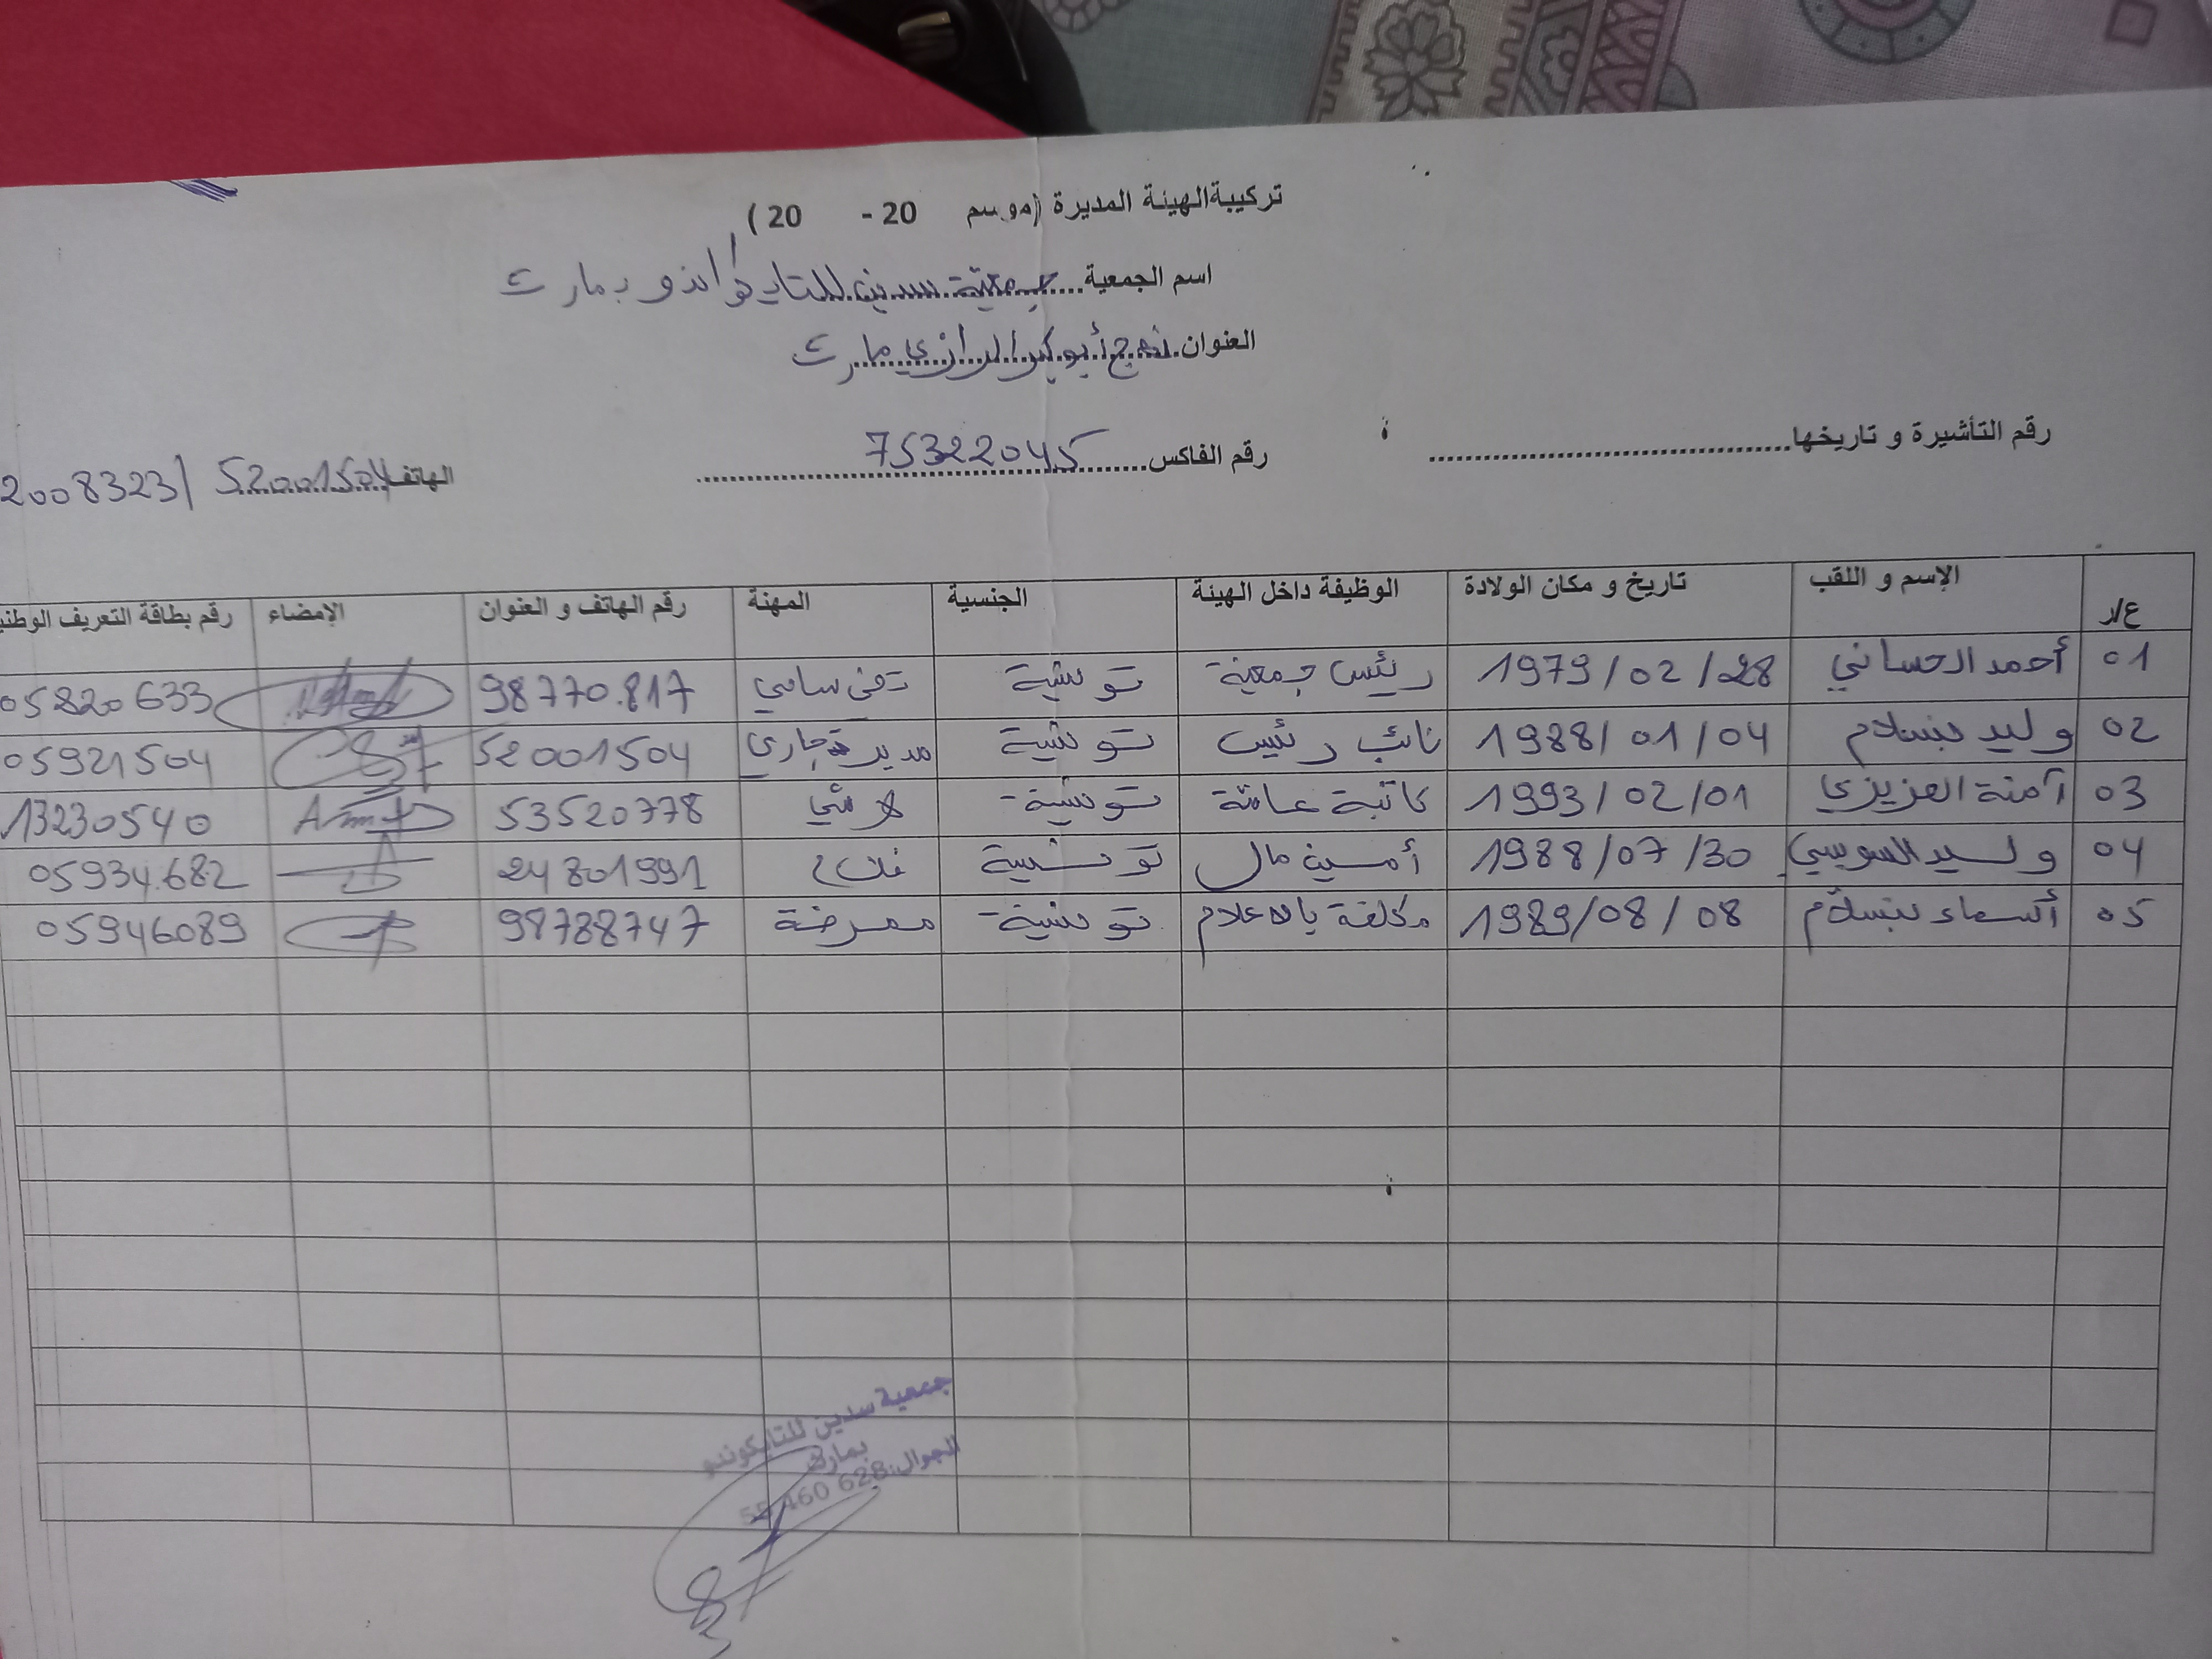 تركيبة الهيئة المديرة (موسم 20 - 20 )
اسم الجمعية جمعية سدين للتايكواندو بمارث
العنوان نهج أبو بكر الرازي مارث
رقم التأشيرة و تاريخها
رقم الفاكس 75322045
الهاتف 52001504 /2008323
ع/ر الإسم و اللقب تاريخ و مكان الولادة الوظيفة داخل الهيئة الجنسية المهنة رقم الهاتف و العنوان الإمضاء رقم بطاقة التعريف الوطني
01 أحمد الحساني 1979/02/28 رئيس جمعية تونسية تقني سامي 98770.817 05820633
02 وليد بنسلام 1988/01/04 نائب رئيس تونسية مدير تجاري 52001504 05921504
03 آمنة العزيزي 1993/02/01 كاتبة عامة تونسية لا شي 53520778 13230540
04 وليد السويسي 1988/07/30 أمين مال تونسية فلاح 24801991 05934.682
05 أسماء بنسلام 1989/08/08 مكلفة بالاعلام تونسية ممرضة 98788747 05946089
جمعية سدين للتايكوندو
بمارث
الجوال: 55 460 628